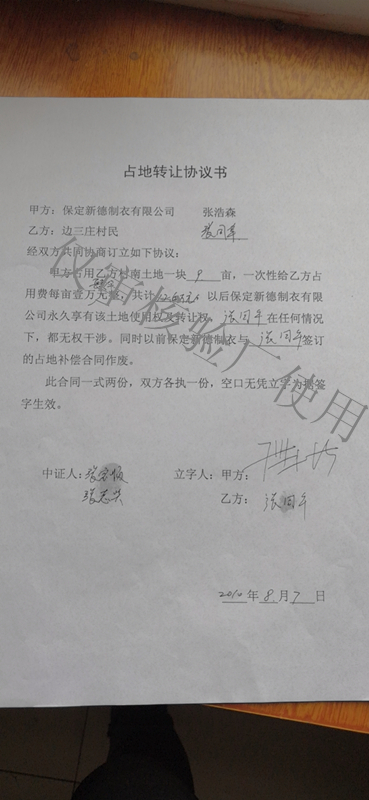 占地转让协议书
甲方：保定新德制衣有限公司 张浩森
乙方：边三庄村民 张同年
经双方共同协商订立如下协议：
甲方占用乙方村南土地一块 9 亩，一次性给乙方占
用费每亩壹万元整，共计 以后保定新德制衣有
限公司永久享有该土地使用权及转让权， 张同年 在任何情况
下，都无权干涉。同时以前保定新德制衣与 张同年 签订
的占地补偿合同作废。
此合同一式两份，双方各执一份，空口无凭立字为据签
字生效。
中证人： 立字人：甲方：
张志兴
乙方： 张同年
2010 年 8 月 7 日
仅重核验厂使用